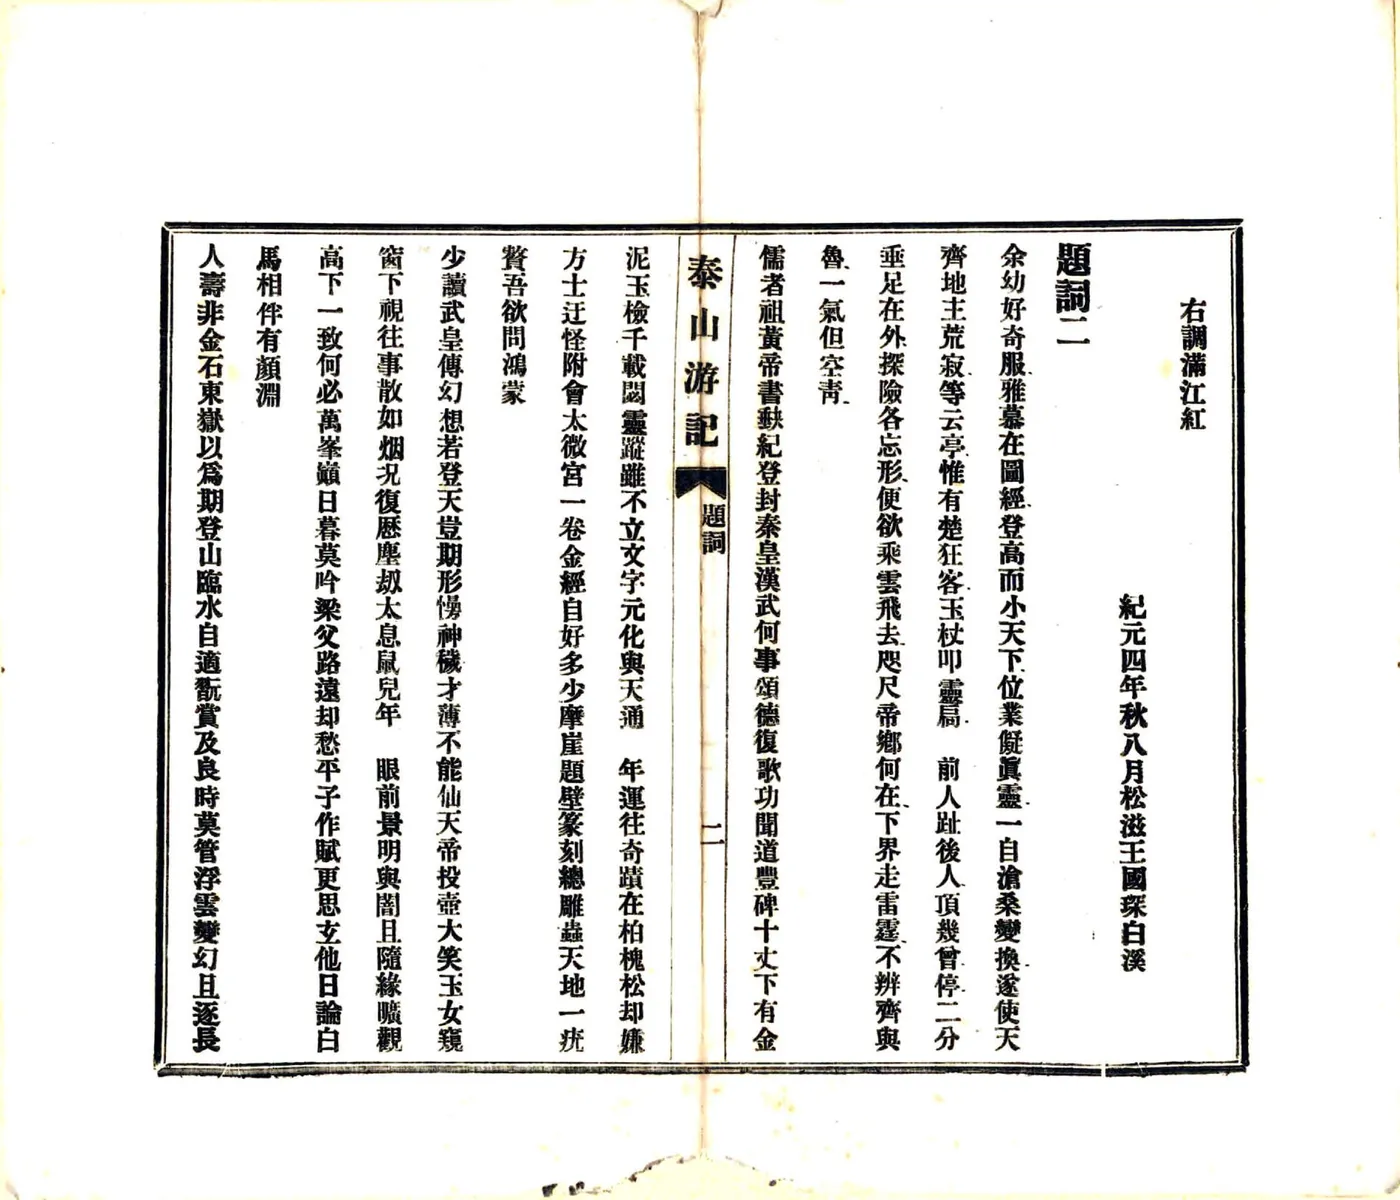 右調滿江紅
紀元四年秋八月松滋王國琛白溪
題詞二
余幼好奇服雅慕在圖經登高而小天下位業儗眞靈一自滄桑變換遂使天
齊地主荒寂等云亭惟有楚狂客玉杖叩靈扃　前人趾後人頂幾曾停二分
垂足在外探險各忘形便欲乘雲飛去咫尺帝鄉何在下界走雷霆不辨齊與
魯一氣但空靑
儒者祖黃帝書缺紀登封秦皇漢武何事頌德復歌功聞道豐碑十丈下有金
泰山游記
題詞
二
泥玉檢千載閟靈蹤雖不立文字元化與天通　年運往奇蹟在柏槐松却嫌
方士迂怪附會太微宮一卷金經自好多少摩崖題壁篆刻總雕蟲天地一疣
贅吾欲問鴻蒙
少讀武皇傳幻想若登天豈期形慢神穢才薄不能仙天帝投壺大笑玉女窺
窗下視往事散如烟况復歷塵刼太息鼠兒年　眼前景明與闇且隨緣曠觀
高下一致何必萬峯巓日暮莫吟梁父路遠却愁平子作賦更思玄他日論白
馬相伴有顏淵
人壽非金石東嶽以爲期登山臨水自適翫賞及良時莫管浮雲變幻且逐長